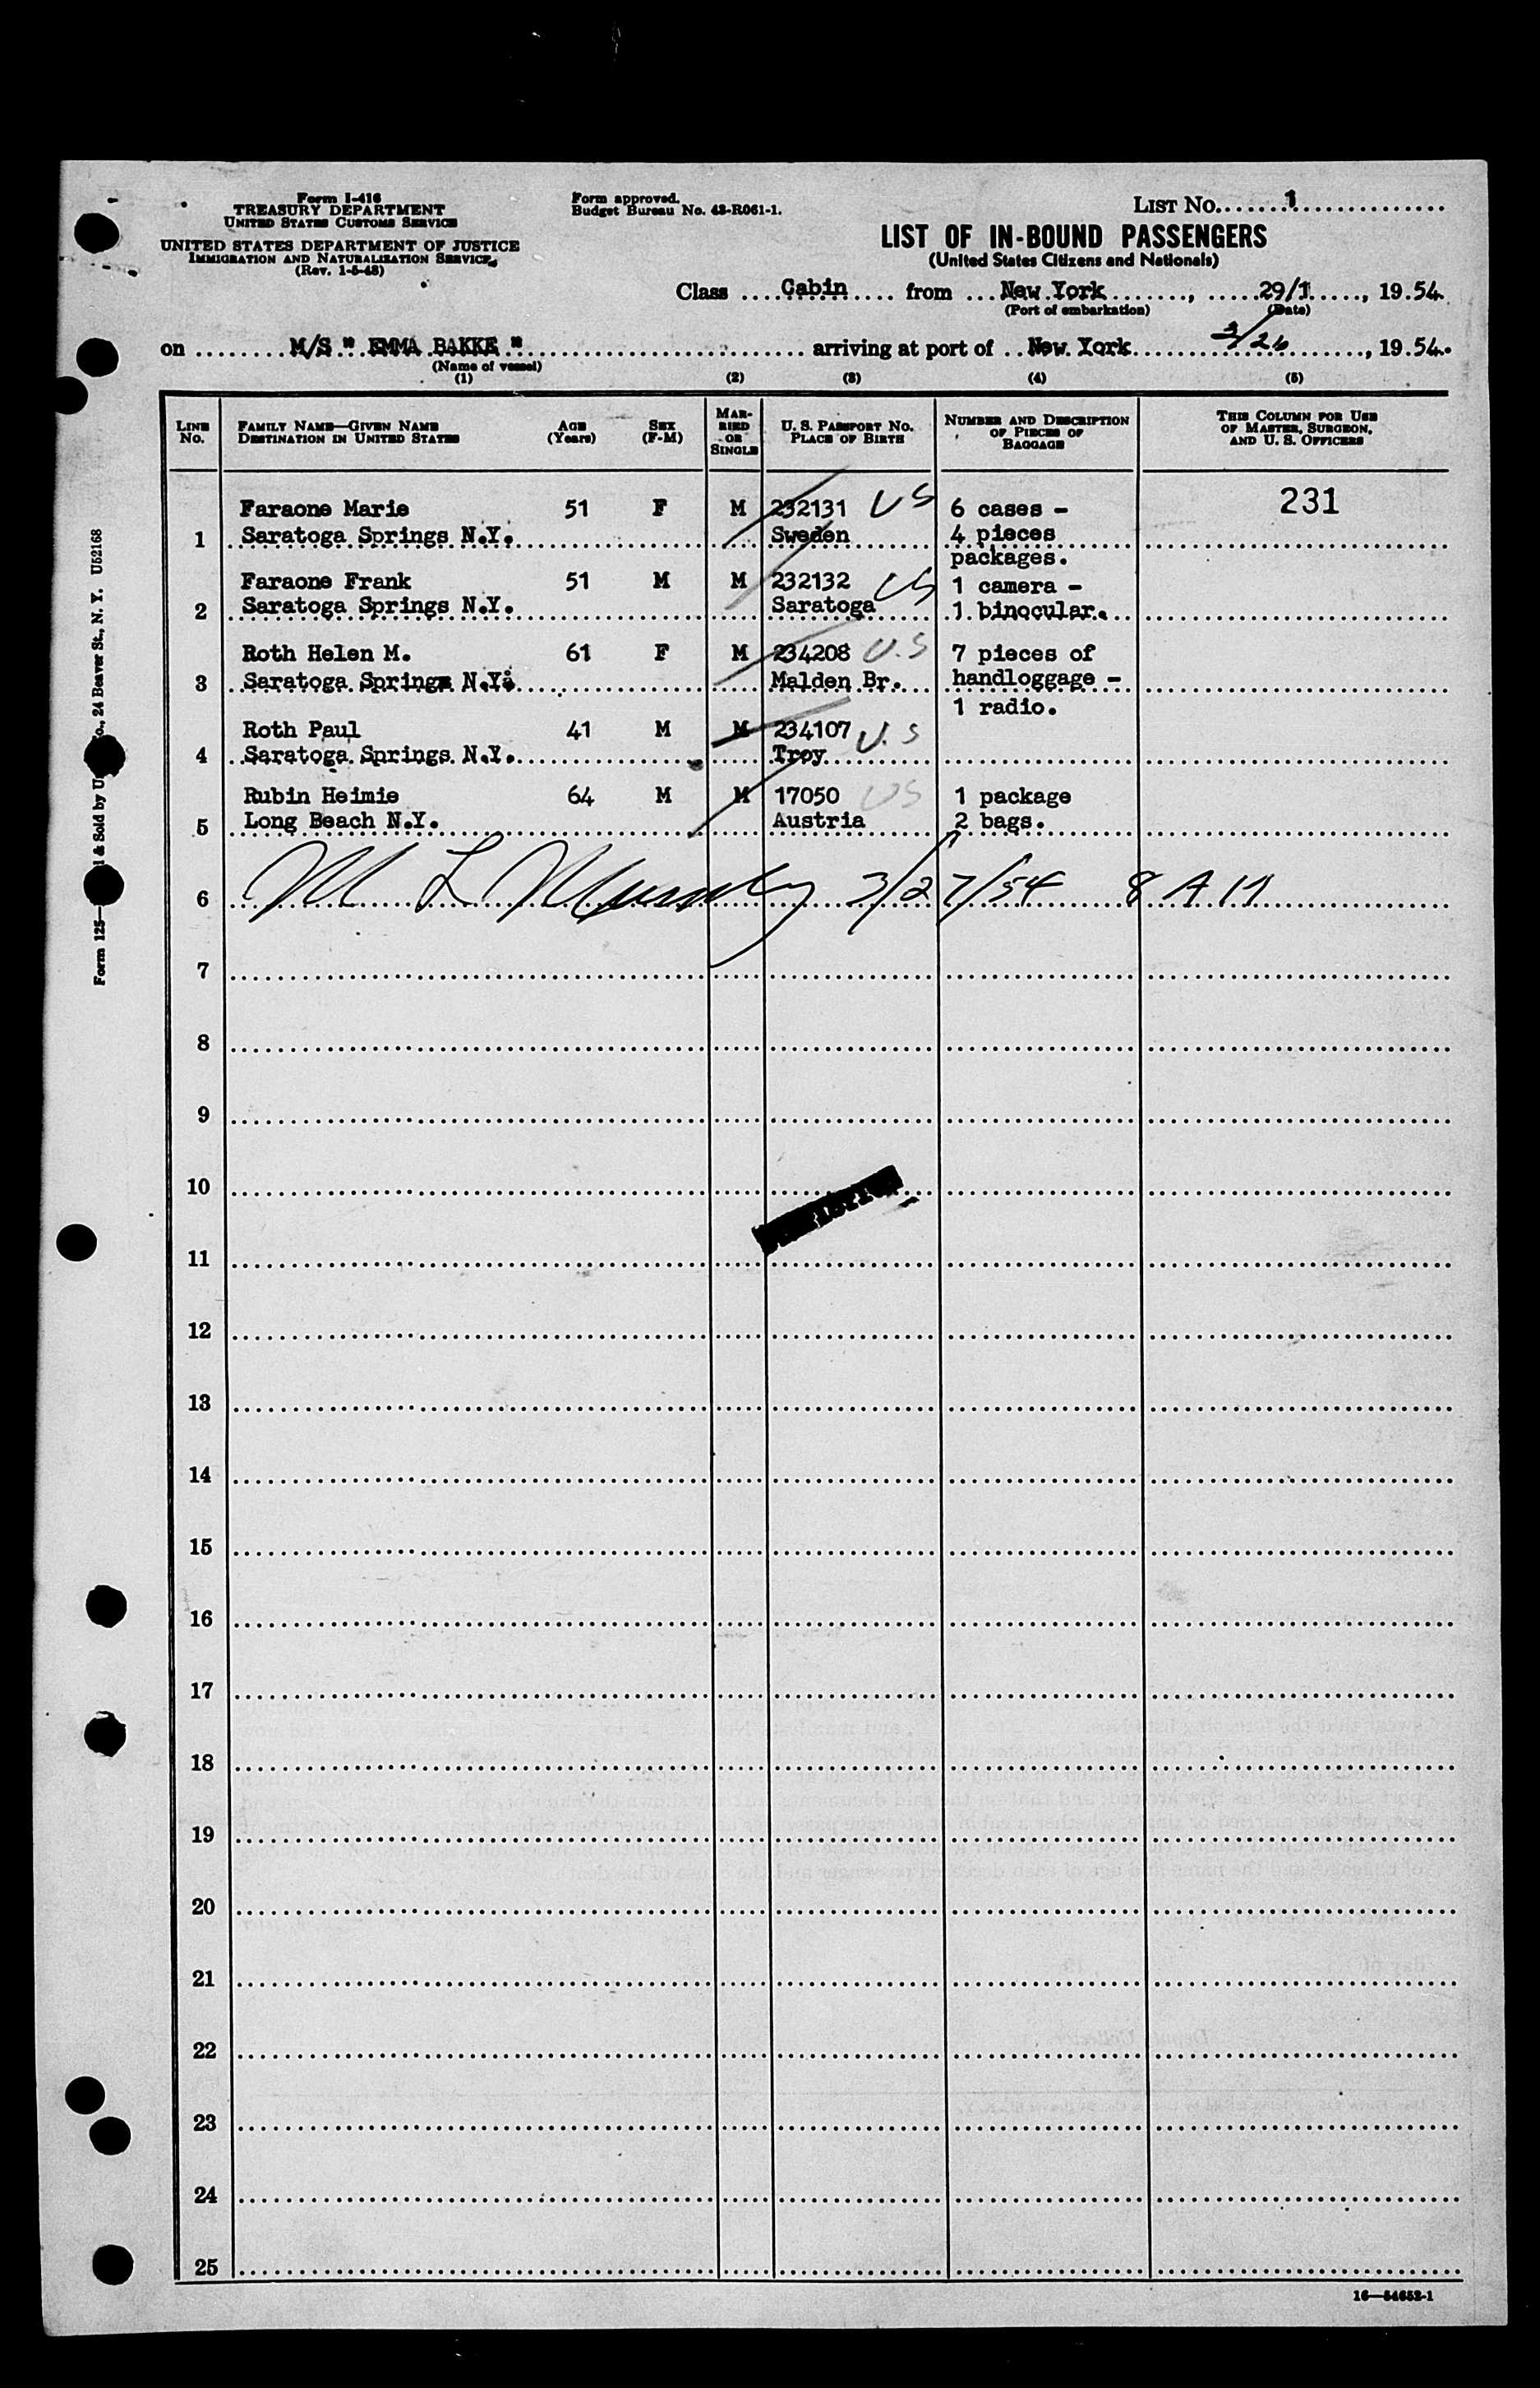 Form I-416
TREASURY DEPARTMENT
UNITED STATES CUSTOMS SERVICE
UNITED STATES DEPARTMENT OF JUSTICE
IMMIGRATION AND NATURALIZATION SERVICE
(Rev. 1-5-48)
Form approved.
Budget Bureau No. 43-R061-1.
LIST No. 1
LIST OF IN-BOUND PASSENGERS
(United States Citizens and Nationals)
Class Cabin from New York, 29/1, 1954.
(Port of embarkation) (Date)
on M/S " EMMA BAKKE " arriving at port of New York 3/26, 1954.
(Name of vessel)
(1) (2) (3) (4) (5)
LINE No. FAMILY NAME—GIVEN NAME DESTINATION IN UNITED STATES AGE (Years) SEX (F-M) MARRIED OR SINGLE U. S. PASSPORT No. PLACE OF BIRTH NUMBER AND DESCRIPTION OF PIECES OF BAGGAGE THIS COLUMN FOR USE OF MASTER, SURGEON, AND U. S. OFFICERS
Faraone Marie 51 F M 232131 US 6 cases - 231
1 Saratoga Springs N.Y. Sweden 4 pieces
packages.
Faraone Frank 51 M M 232132 US 1 camera -
2 Saratoga Springs N.Y. Saratoga 1 binocular.
Roth Helen M. 61 F M 234208 U.S 7 pieces of
3 Saratoga Springs N.Y. Malden Br. handloggage -
1 radio.
Roth Paul 41 M M 234107 U.S
4 Saratoga Springs N.Y. Troy
Rubin Heimie 64 M M 17050 US 1 package
5 Long Beach N.Y. Austria 2 bags.
6 M L Murphy 3/27/54 8 AM
7
8
9
10
11
12
13
14
15
16
17
18
19
20
21
22
23
24
25
16—54652-1
Form 125— & Sold by 24 Beaver St., N. Y. U52168